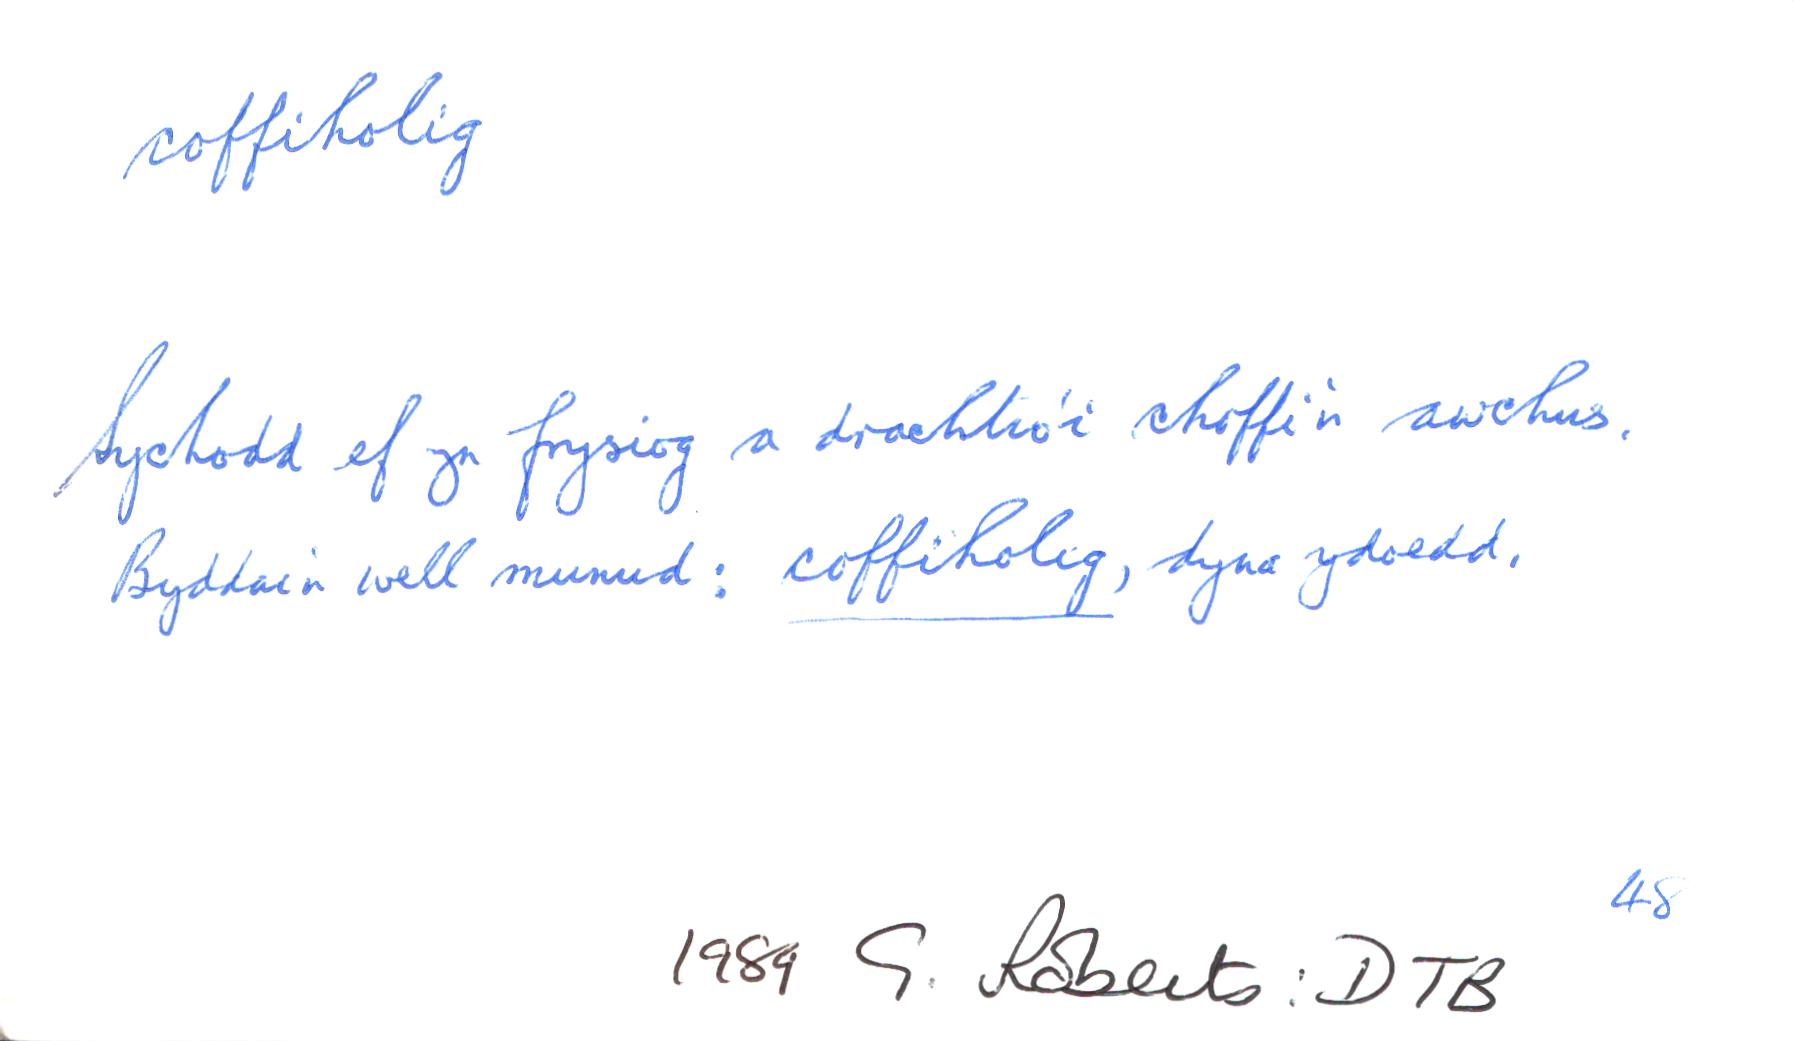 coffiholig
Sychodd ef yn frysiog a drachtio'i choffi'n awchus.
Byddai'n well munud: coffiholig, dyna ydoedd.
48
1989 G. Roberts: DTB